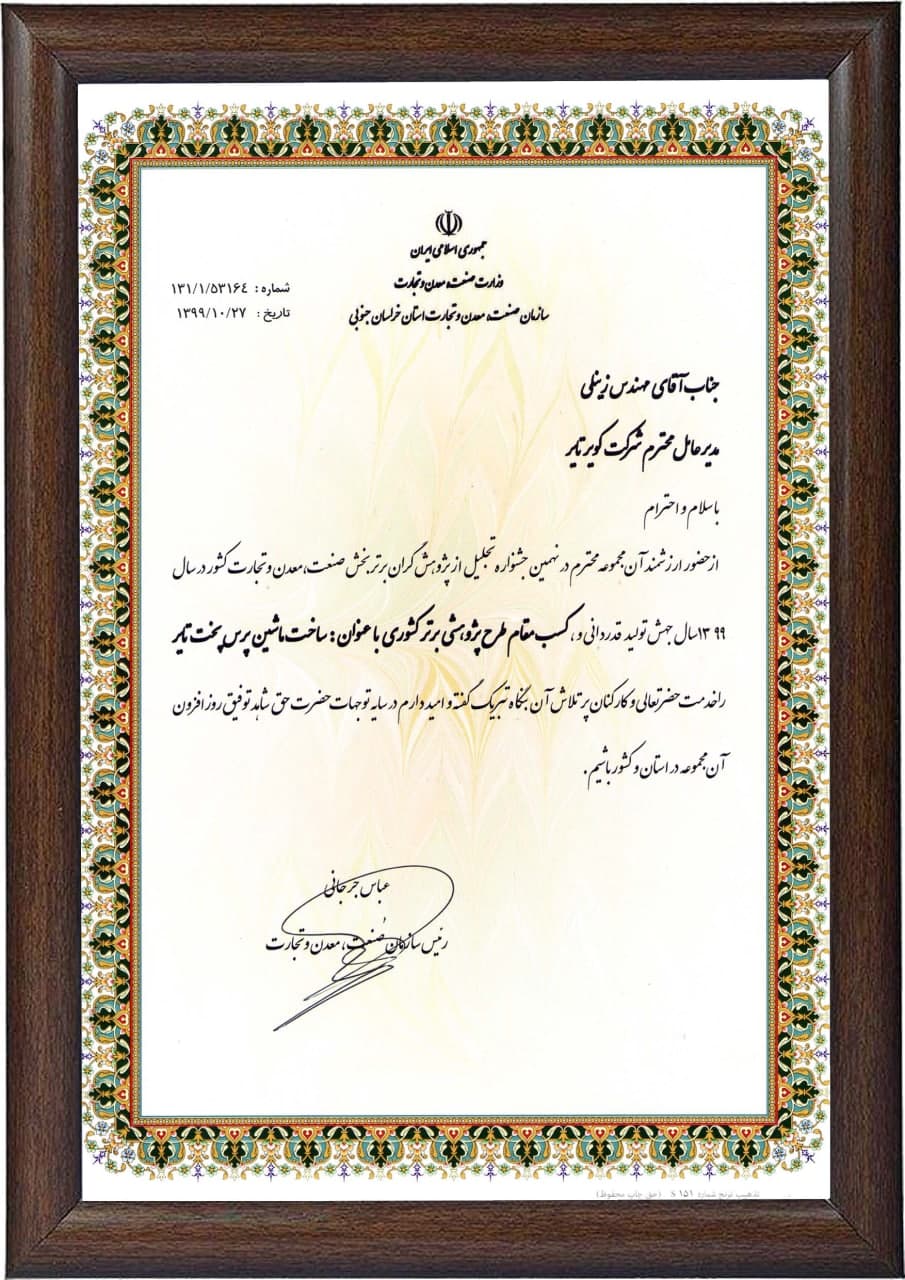 جمهوری اسلامی ایران
وزارت صنعت، معدن و تجارت
سازمان صنعت، معدن و تجارت استان خراسان جنوبی
شماره : ۱۳۱/۱/۵۳۱۶۴
تاریخ : ۱۳۹۹/۱۰/۲۷
جناب آقای مهندس زینلی
مدیر عامل محترم شرکت کویر تایر
با سلام و احترام
از حضور ارزشمند آن مجموعه محترم در نهمین جشنواره تجلیل از پژوهش گران برتر بخش صنعت، معدن و تجارت کشور در سال
۱۳۹۹ سال جهش تولید قدردانی و ، کسب مقام طرح پژوهشی برتر کشوری با عنوان : ساخت ماشین پرس پخت تایر
را خدمت حضرتعالی و کارکنان پر تلاش آن بنگاه تبریک گفته و امید دارم در سایه توجهات حضرت حق شاهد توفیق روز افزون
آن مجموعه در استان و کشور باشیم .
عباس جرجانی
رئیس سازمان صنعت، معدن و تجارت
تذهیب ترنج شماره S ۱۵۱ (حق چاپ محفوظ)